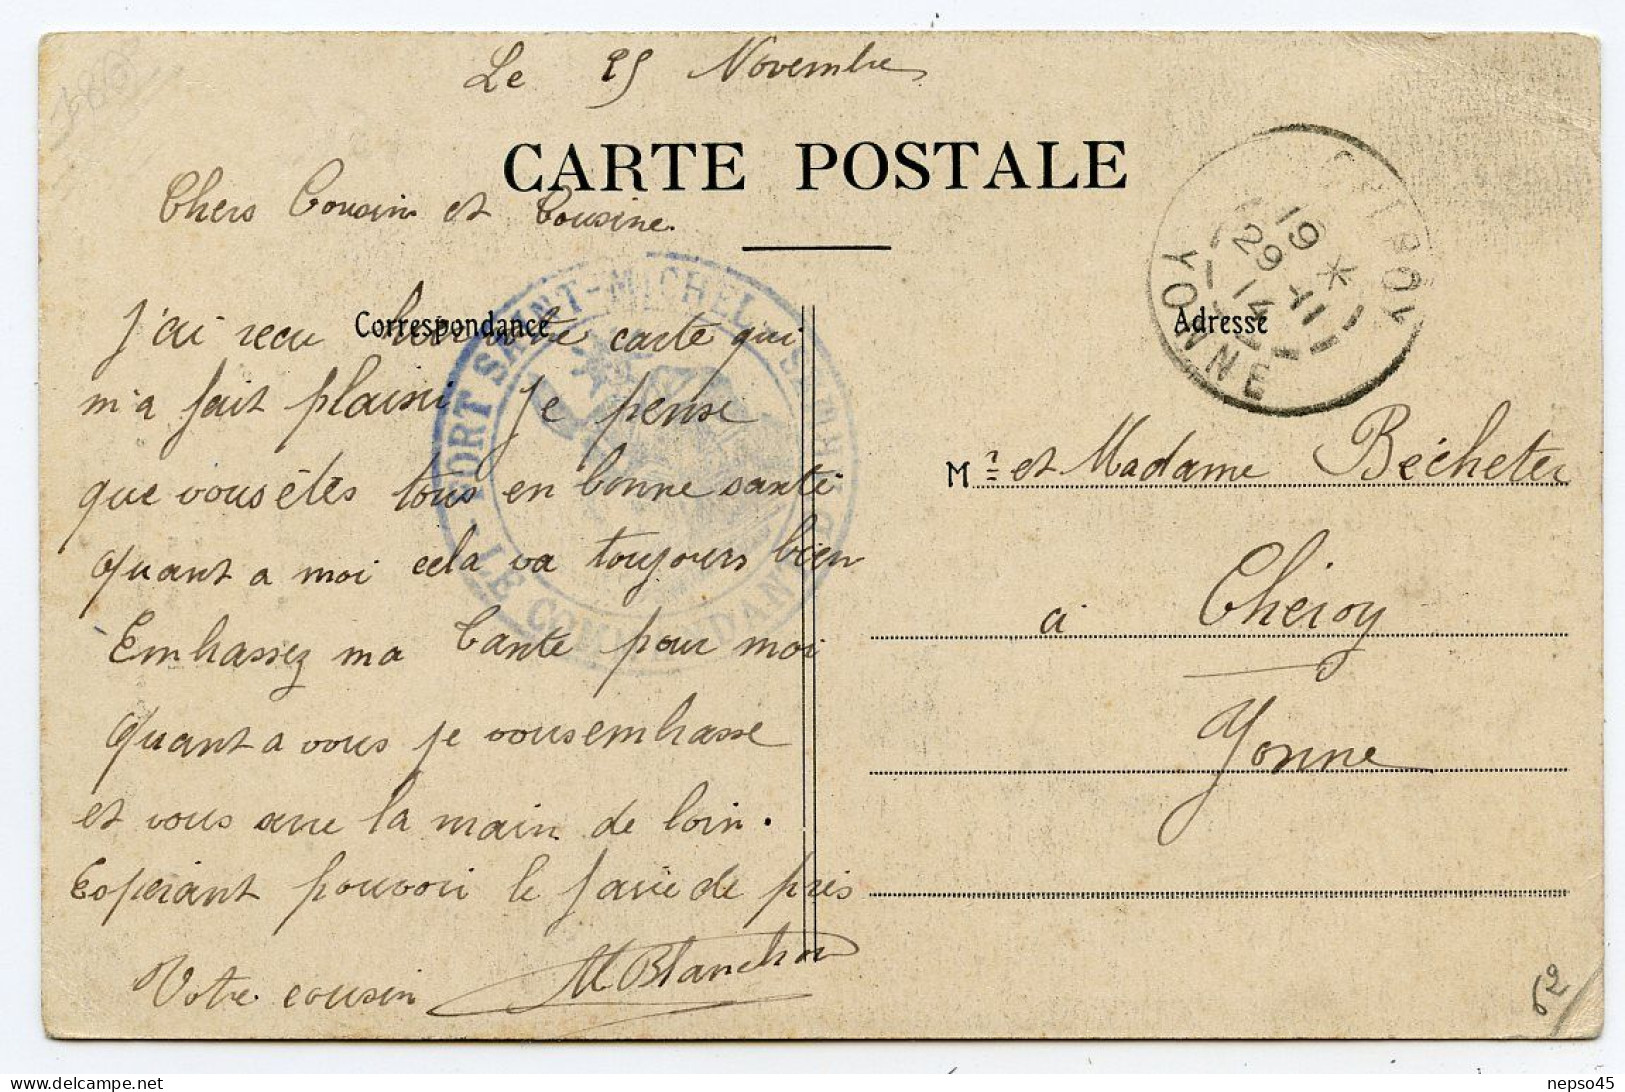 Le 25 Novembre
CARTE POSTALE
Chers Cousin et Cousine.
Correspondance
J'ai recu votre carte qui
m'a fait plaisir je pense
que vous étes tous en bonne santé
quant a moi cela va toujours bien
Embassez ma Tante pour moi
Quant a vous je vous embrasse
et vous serre la main de loin.
Esperant pouvoir le faire de près
Votre cousin M Blanchon
FORT SAINT-MICHEL
LE COMMANDANT
Adresse
19 *
29 -11
14
YONNE
Mr et Madame Bécheter
à Cheroy
Yonne
62
nepso45